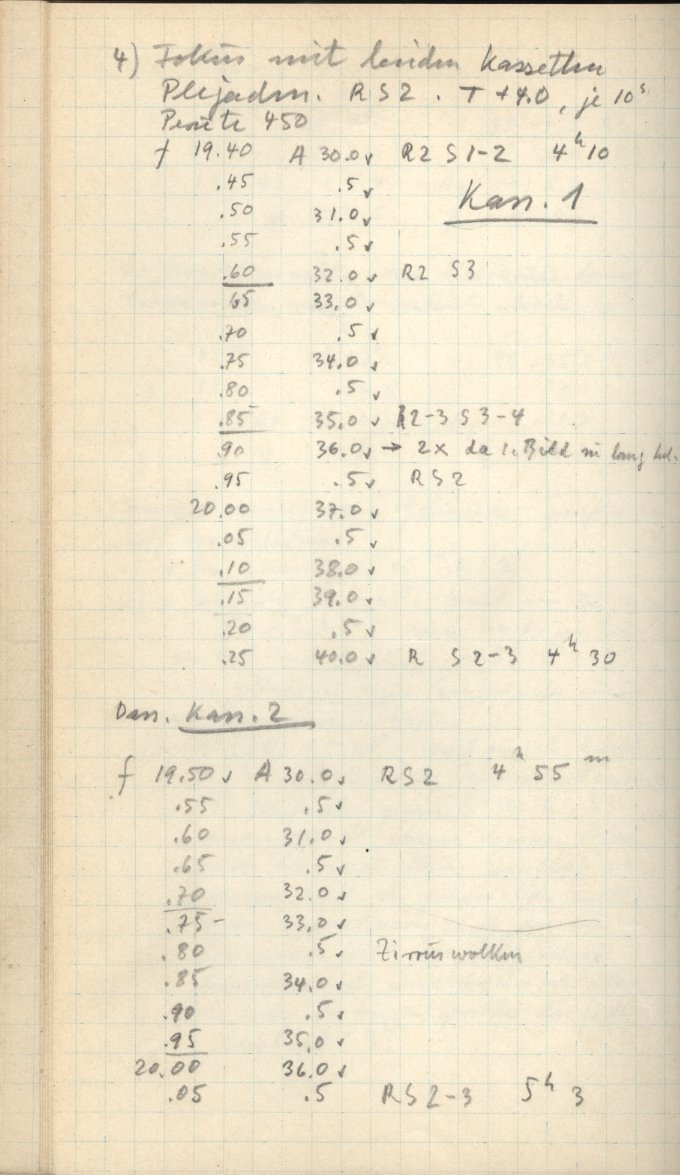 4) Fokus mit beiden Kassetten
Plejaden. RS2. T +4.0, je 10s
Peru te 450
f 19.40 A 30.0 v R2 S1-2 4h 10
.45 .5 v
Kass. 1
.50 31.0 v
.55 .5 v
.60 32.0 v R2 S3
65 33.0 v
.70 .5 v
.75 34.0 v
.80 .5 v
.85 35.0 v R2-3 S3-4
90 36.0 v → 2x da 1. Bild zu lang bel.
.95 .5 v RS2
20.00 37.0 v
.05 .5 v
.10 38.0 v
.15 39.0 v
.20 .5 v
.25 40.0 v R S 2-3 4h 30
Dass. Kass. 2
f 19.50 v A 30.0 v RS2 4h 55m
.55 .5 v
.60 31.0 v
.65 .5 v
.70 32.0 v
.75 - 33.0 v
.80 .5 v Zirruswolken
.85 34.0 v
.90 .5 v
.95 35.0 v
20.00 36.0 v
.05 .5 RS 2-3 5h 3